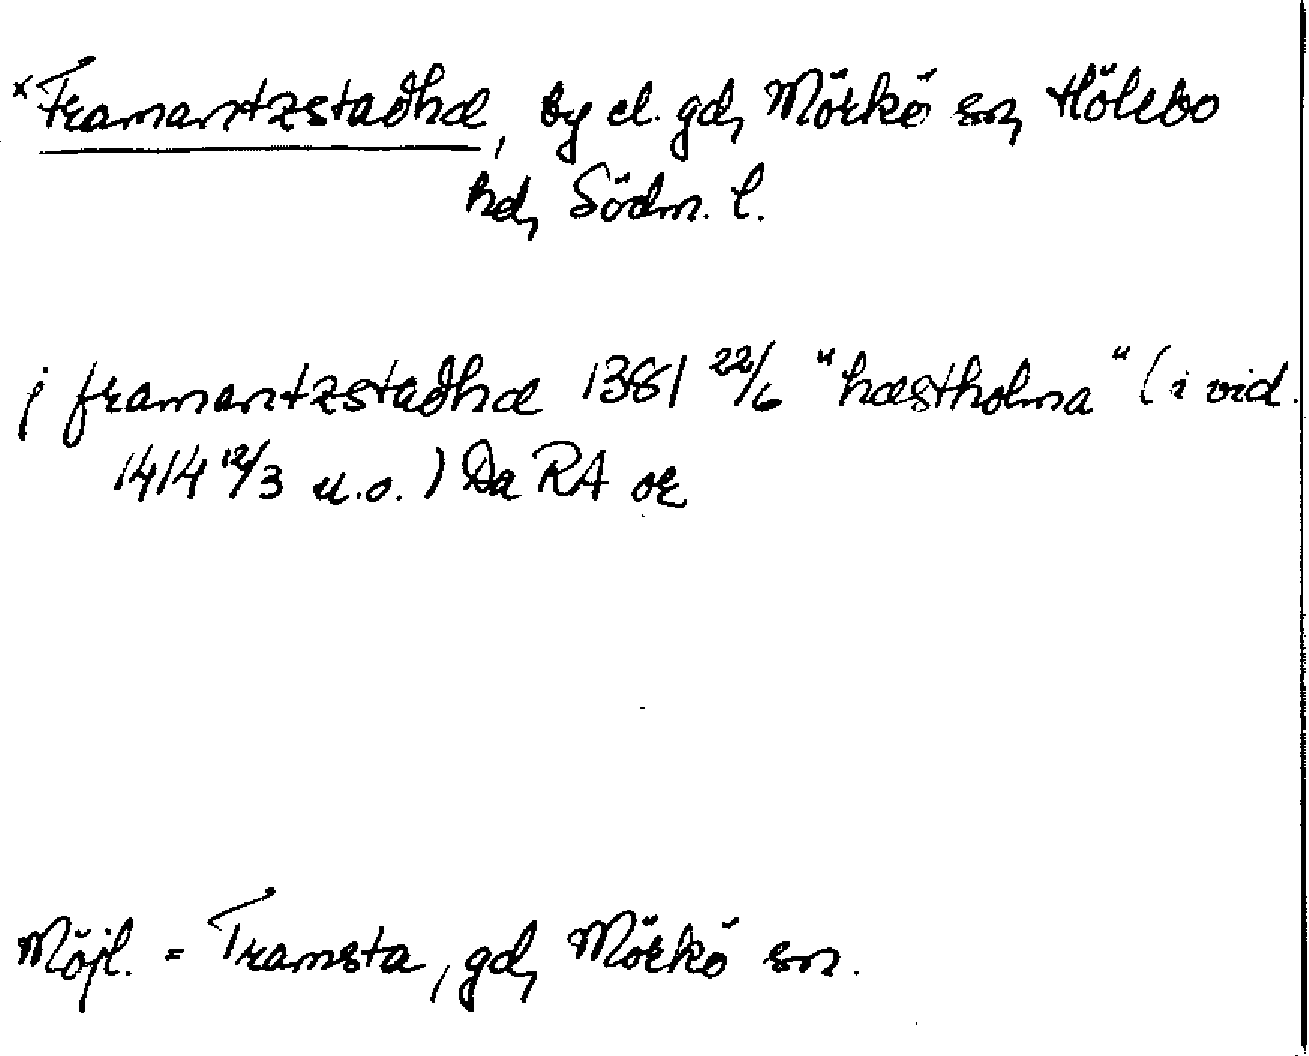 ×Framantzstadhæ, by el. gd, Mörkö sn, Hölebo
hd, Södm. l.
j framantzstadhæ 1381 22/6 "hæstholma" (i vid.
1414 12/3 u.o.) Da RA or
Möjl. = Framsta, gd, Mörkö sn.